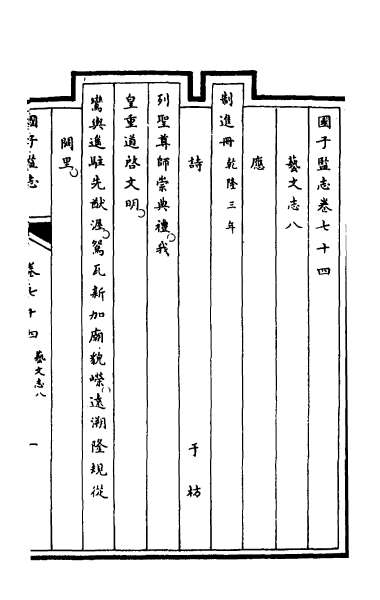 國子監志卷七十四
藝文志八
應
制進冊乾隆三年
詩 于枋
列聖尊師崇典禮我
皇重道啓文明
鸞輿進駐先猷渥鴛瓦新加廟貌嶸遠溯隆規從
闕里
國子監志
卷七十四 藝文志八 一